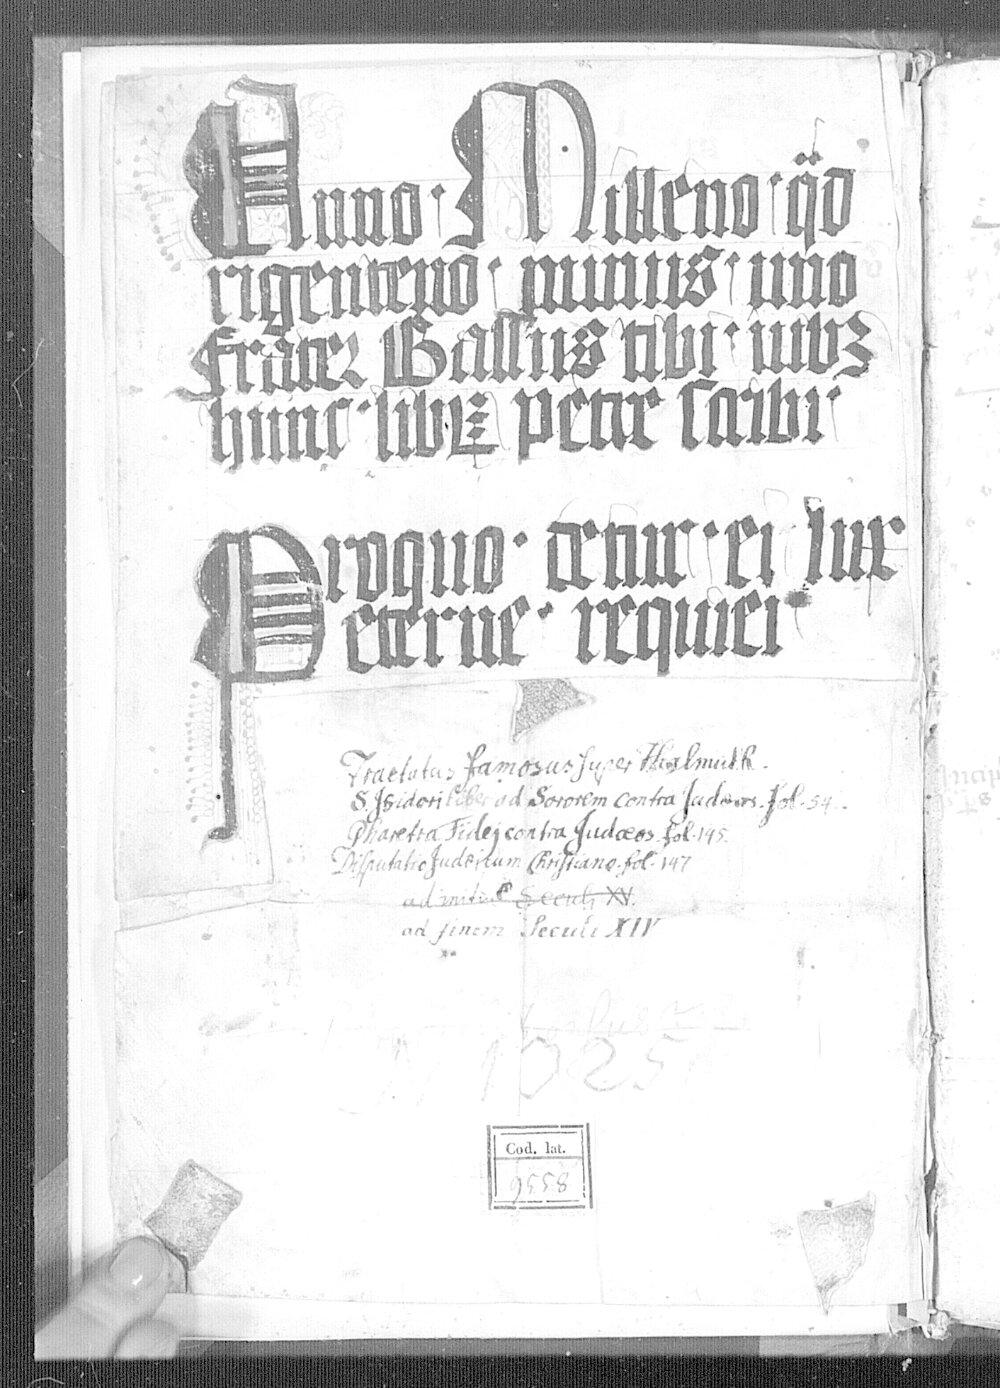 Anno · Milleno · qͣd
rigenteno · minus · uno
Frater Gallus tibi · iubꝫ
hunc · libꝝ petre scribi ·
Pro quo · detur · ei lux
eterne · requiei
Tractatus famosus super
S. Isidori liber ad Sororem contra Judæos. fol. 54.
Pharetra Fidei contra Judæos. fol. 145.
Disputatio Judæorum Christiano. fol. 147
ad initiū Seculi XV.
ad finem Seculi XIV
1025
Cod. lat.
9558